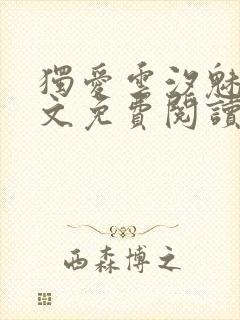 獨愛雲汐魅
文免費閱讀
西森博之